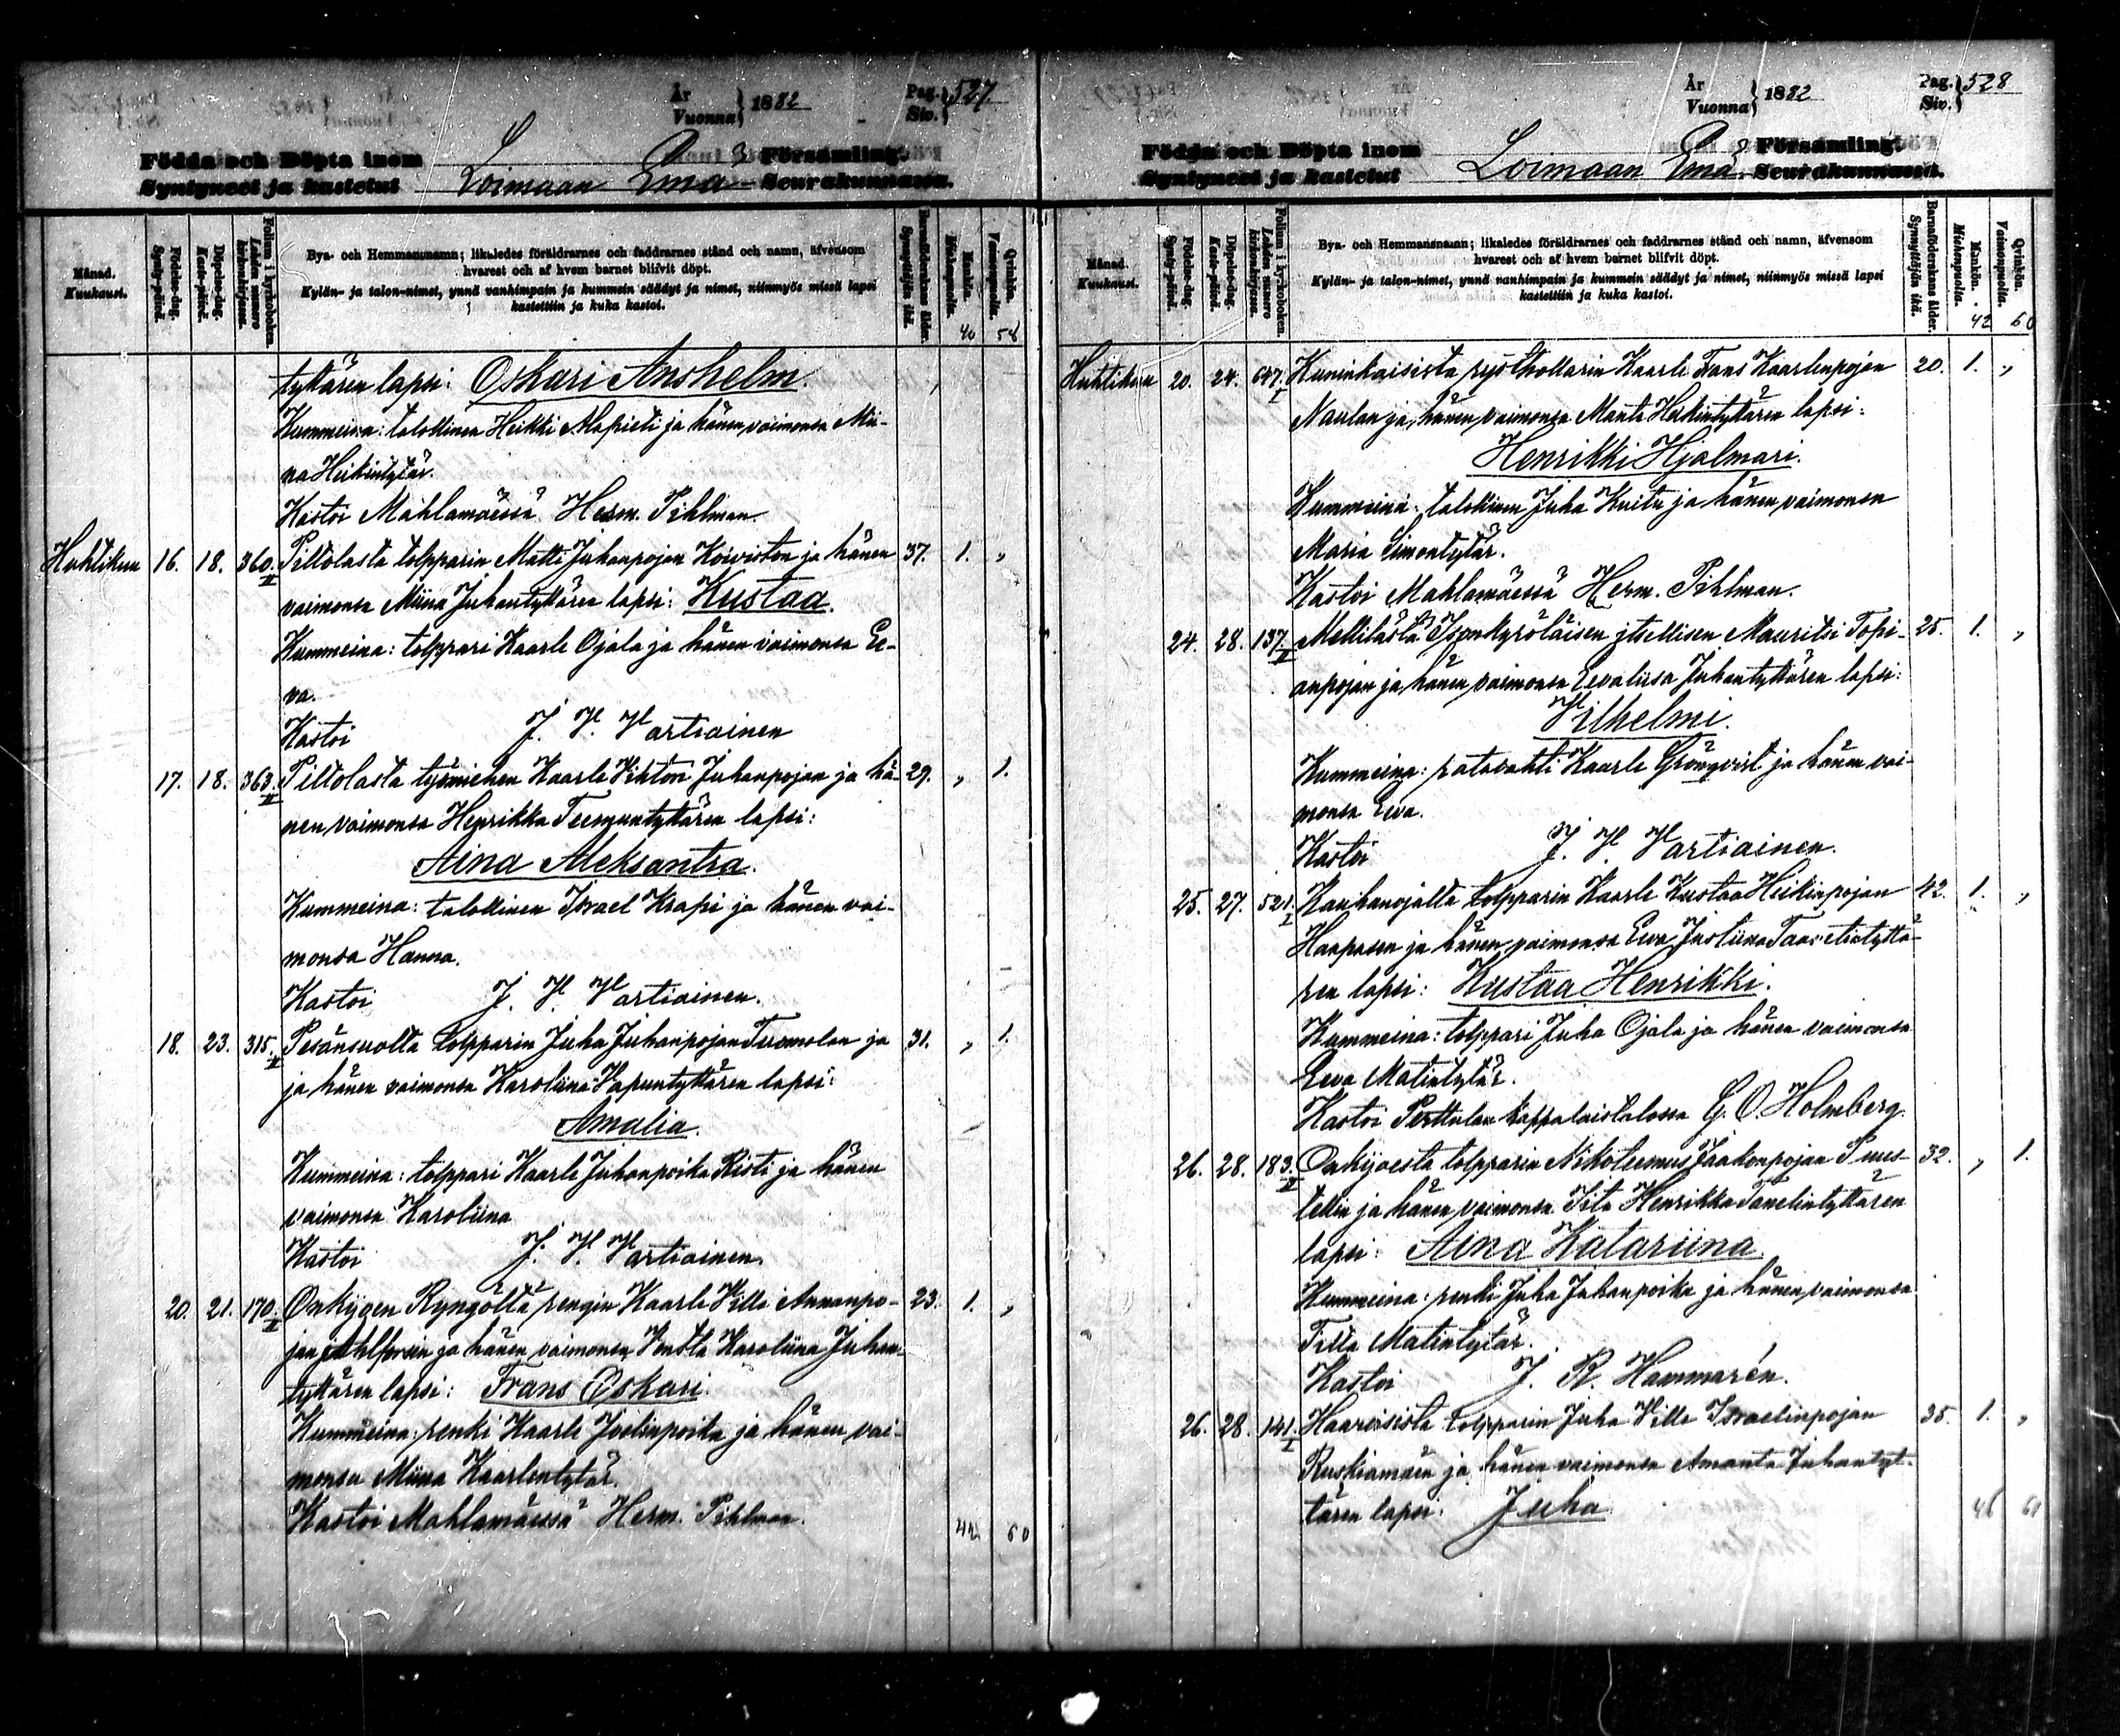 År
Vuonna } 1882
Pag.
Siv. } 527.
Födda och Döpta inom
Syntyneet ja kastetut
Loimaan Emä
Församling.
Seurakunnassa.
Månad.
Kuukausi.
Födelse-dag.
Synty-päivä.
Döpelse-dag.
Kaste-päivä.
Folium i kyrkoboken.
Lehden numero
kirkonkirjassa.
Bya- och Hemmansnamn; likaledes föräldrarnes och faddrarnes stånd och namn, äfvensom
hvarest och af hvem barnet blifvit döpt.
Kylän- ja talon-nimet, ynnä vanhimpain ja kummein säädyt ja nimet, niinmyös missä lapsi
kastettiin ja kuka kastoi.
Barnaföderskans ålder.
Synnyttäjän ikä.
Mankön.
Miehenpuolia.
Qvinkön.
Vaimonpuolia.
40 58
tyttären lapsi: Oskari Anshelm.
Kummeina: talollinen Heikki Alapieti ja hänen vaimonsa Mii-
na Heikintytär.
Kastoi Mahlamäessä Herm. Pihlman.
Huhtikuu 16. 18. 360. II Piltolasta torpparin Matti Juhanpojan Koiviston ja hänen 37. 1. "
vaimonsa Miina Juhantyttären lapsi: Kustaa.
Kummeina: torppari Kaarle Ojala ja hänen vaimonsa Ee-
va.
Kastoi J. H. Vartiainen
17. 18. 363. II Piltolasta työmiehen Kaarle Vihtori Juhanpojan ja hä- 29. " 1.
nen vaimonsa Henrikka Teemuntyttären lapsi:
Aina Aleksantra.
Kummeina: talollinen Israel Krapi ja hänen vai-
monsa Hanna.
Kastoi J. H. Vartiainen.
18. 23. 315. II Pesänsuolta torpparin Juha Juhanpojan Tuomolan ja 31. " 1.
ja hänen vaimonsa Karoliina Vapuntyttären lapsi:
Amalia.
Kummeina: torppari Kaarle Juhanpoika Risti ja hänen
vaimonsa Karoliina
Kastoi J. H. Vartiainen.
20. 21. 170. II Onkijoen Ryngöltä rengin Kaarle Ville Annanpo- 23. 1. "
jan Ahlforsin ja hänen vaimonsa Vensla Karoliina Juhan-
tyttären lapsi: Frans Oskari.
Kummeina: renki Kaarle Joelinpoika ja hänen vai-
monsa Miina Kaarlentytär.
Kastoi Mahlamäessä Herm. Pihlman.
42 60
År
Vuonna } 1882
Pag.
Siv. } 528
Födda och Döpta inom
Syntyneet ja kastetut
Loimaan Emä
Församling.
Seurakunnassa.
Månad.
Kuukausi.
Födelse-dag.
Synty-päivä.
Döpelse-dag.
Kaste-päivä.
Folium i kyrkoboken.
Lehden numero
kirkonkirjassa.
Bya- och Hemmansnamn; likaledes föräldrarnes och faddrarnes stånd och namn, äfvensom
hvarest och af hvem barnet blifvit döpt.
Kylän- ja talon-nimet, ynnä vanhimpain ja kummein säädyt ja nimet, niinmyös missä lapsi
kastettiin ja kuka kastoi.
Barnaföderskans ålder.
Synnyttäjän ikä.
Mankön.
Miehenpuolia.
Qvinkön.
Vaimonpuolia.
42 60
Huhtikuu 20. 24. 647. I Kuninkaisista rysthollarin Kaarle Frans Kaarlenpojan 20. 1. "
Naulan ja hänen vaimonsa Manta Heikintyttären lapsi:
Henrikki Hjalmari.
Kummeina: talollinen Juha Kuitu ja hänen vaimonsa
Maria Simontytär.
Kastoi Mahlamäessä Herm. Pihlman.
24. 28. 137. II Mellilästä Isonkyröläisen itsellisen Mauritsi Topi- 25. 1. "
anpojan ja hänen vaimonsa Eevaliisa Juhantyttären lapsi:
Vilhelmi.
Kummeina: ratavahti Kaarle Grönqvist ja hänen vai-
monsa Eeva.
Kastoi J. H. Vartiainen.
25. 27. 521. I Kauhanojalta torpparin Kaarle Kustaa Heikinpojan 42. 1. "
Haapasen ja hänen vaimonsa Eeva Justiina Taavetintyttä-
ren lapsi: Kustaa Henrikki.
Kummeina: torppari Juha Ojala ja hänen vaimonsa
Eeva Matintytär.
Kastoi Perttulan kappalaistalossa G. O. Holmberg.
26. 28. 183. II Onkijoesta torpparin Nikoteemus Jaakonpojan Puus- 32. " 1.
tellin ja hänen vaimonsa Iita Henrikka Tanelintyttären
lapsi: Aina Katariina
Kummeina: renki Juha Juhanpoika ja hänen vaimonsa
Tilta Matintytär.
Kastoi J. R. Hammarén.
26. 28. 141. I Haaroisista torpparin Juha Ville Israelinpojan 35. 1. "
Ruskiamäen ja hänen vaimonsa Amanta Juhantyt-
tären lapsi: Juha
46 61